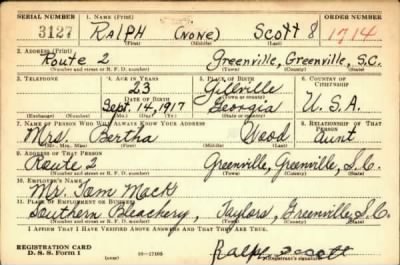 SERIAL NUMBER 1. NAME (Print) ORDER NUMBER
3127 RALPH (NONE) Scott 8 1714
(First) (Middle) (Last)
2. ADDRESS (Print)
Route 2 Greenville, Greenville, S.C.
(Number and street or R. F. D. number) (Town) (County) (State)
3. TELEPHONE 4. AGE IN YEARS 5. PLACE OF BIRTH 6. COUNTRY OF CITIZENSHIP
23 Gillville
DATE OF BIRTH (Town or county)
Sept. 14, 1917 Georgia U.S.A.
(Exchange) (Number) (Mo.) (Day) (Yr.) (State or country)
7. NAME OF PERSON WHO WILL ALWAYS KNOW YOUR ADDRESS 8. RELATIONSHIP OF THAT PERSON
Mrs. Bertha Wood Aunt
(Mr., Mrs., Miss) (First) (Middle) (Last)
9. ADDRESS OF THAT PERSON
Route 2 Greenville, Greenville, S.C.
(Number and street or R. F. D. number) (Town) (County) (State)
10. EMPLOYER'S NAME
Mr. Tom Mack
11. PLACE OF EMPLOYMENT OR BUSINESS
Southern Bleachery, Taylors, Greenville, S.C.
(Number and street or R. F. D. number) (Town) (County) (State)
I AFFIRM THAT I HAVE VERIFIED ABOVE ANSWERS AND THAT THEY ARE TRUE.
REGISTRATION CARD
D. S. S. Form 1 (over) 16—17105 Ralph Scott
(Registrant's signature)